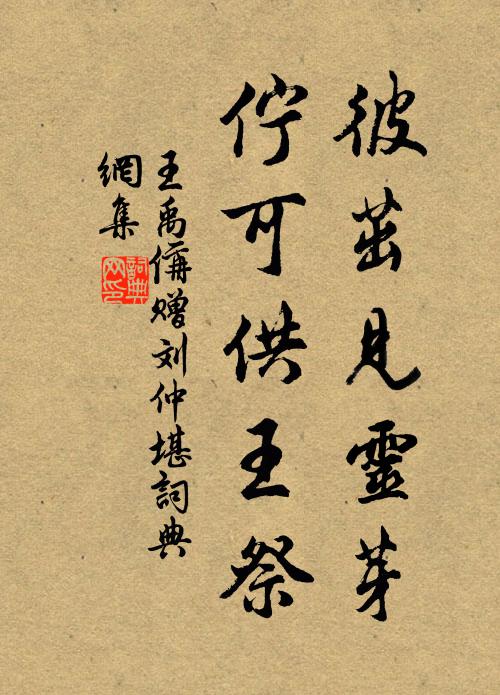 彼茁見靈芽
佇可供王祭
王禹偁贈刘仲堪詞典
網集
詞典
网印